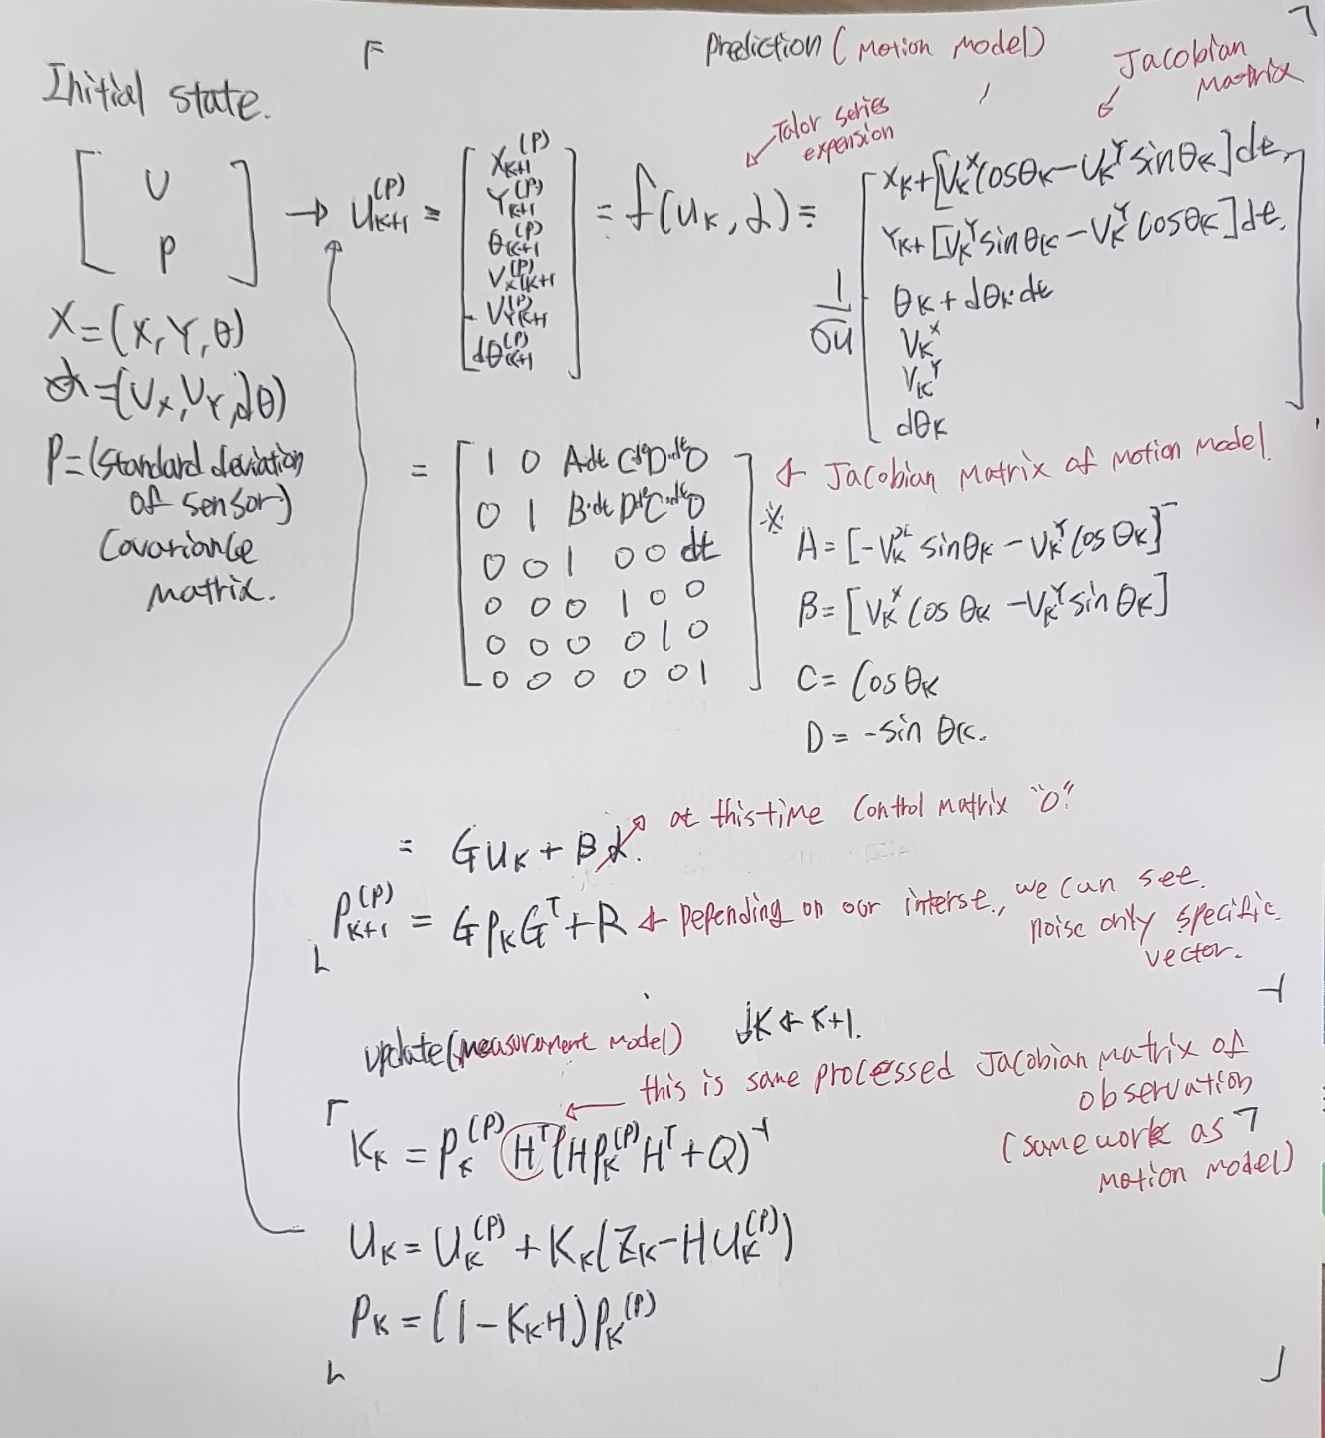 Prediction ( Motion Model)
Initial state.
Jacobian
Matrix
Talor series
expension
[ U
P ]
→ U_{K+1}^{(P)} = [ X_{K+1}^{(P)}
Y_{K+1}^{(P)}
θ_{K+1}^{(P)}
V_{x K+1}^{(P)}
V_{Y K+1}^{(P)}
dθ_{K+1}^{(P)} ] = f(U_K, α) =
1/σu
[ X_K+[V_K^X cosθ_K - V_K^Y sinθ_K]dt,
Y_K+[V_K^Y sinθ_K - V_K^Y cosθ_K]dt,
θ_K + dθ_K·dt
V_K^X
V_K^Y
dθ_K ]
X=(X,Y,θ)
α=(V_X,V_Y,dθ)
P=(Standard deviation
of sensor)
Covariance
Matrix.
= [ 1 0 A·dt C·dt D·dt 0
0 1 B·dt D·dt C·dt 0
0 0 1 0 0 dt
0 0 0 1 0 0
0 0 0 0 1 0
0 0 0 0 0 1 ]
← Jacobian Matrix of Motion Model.
※ A=[-V_K^X sinθ_K - V_K^Y cosθ_K]
B=[V_K^X cos θ_K - V_K^Y sinθ_K]
C= cosθ_K
D = -sin θ_K.
= GU_K + Bα. at this time control matrix "0"
P_{K+1}^{(P)} = GP_KG^T + R ← Depending on our interse., we can see.
noise only specific
vector.
update(measurement model) ↓K ← K+1.
← this is same processed Jacobian matrix of
observation
(same work as
Motion model)
K_K = P_K^{(P)} H^T(HP_K^{(P)}H^T+Q)^{-1}
U_K = U_K^{(P)} + K_K(Z_K-HU_K^{(P)})
P_K = (1-K_KH)P_K^{(P)}